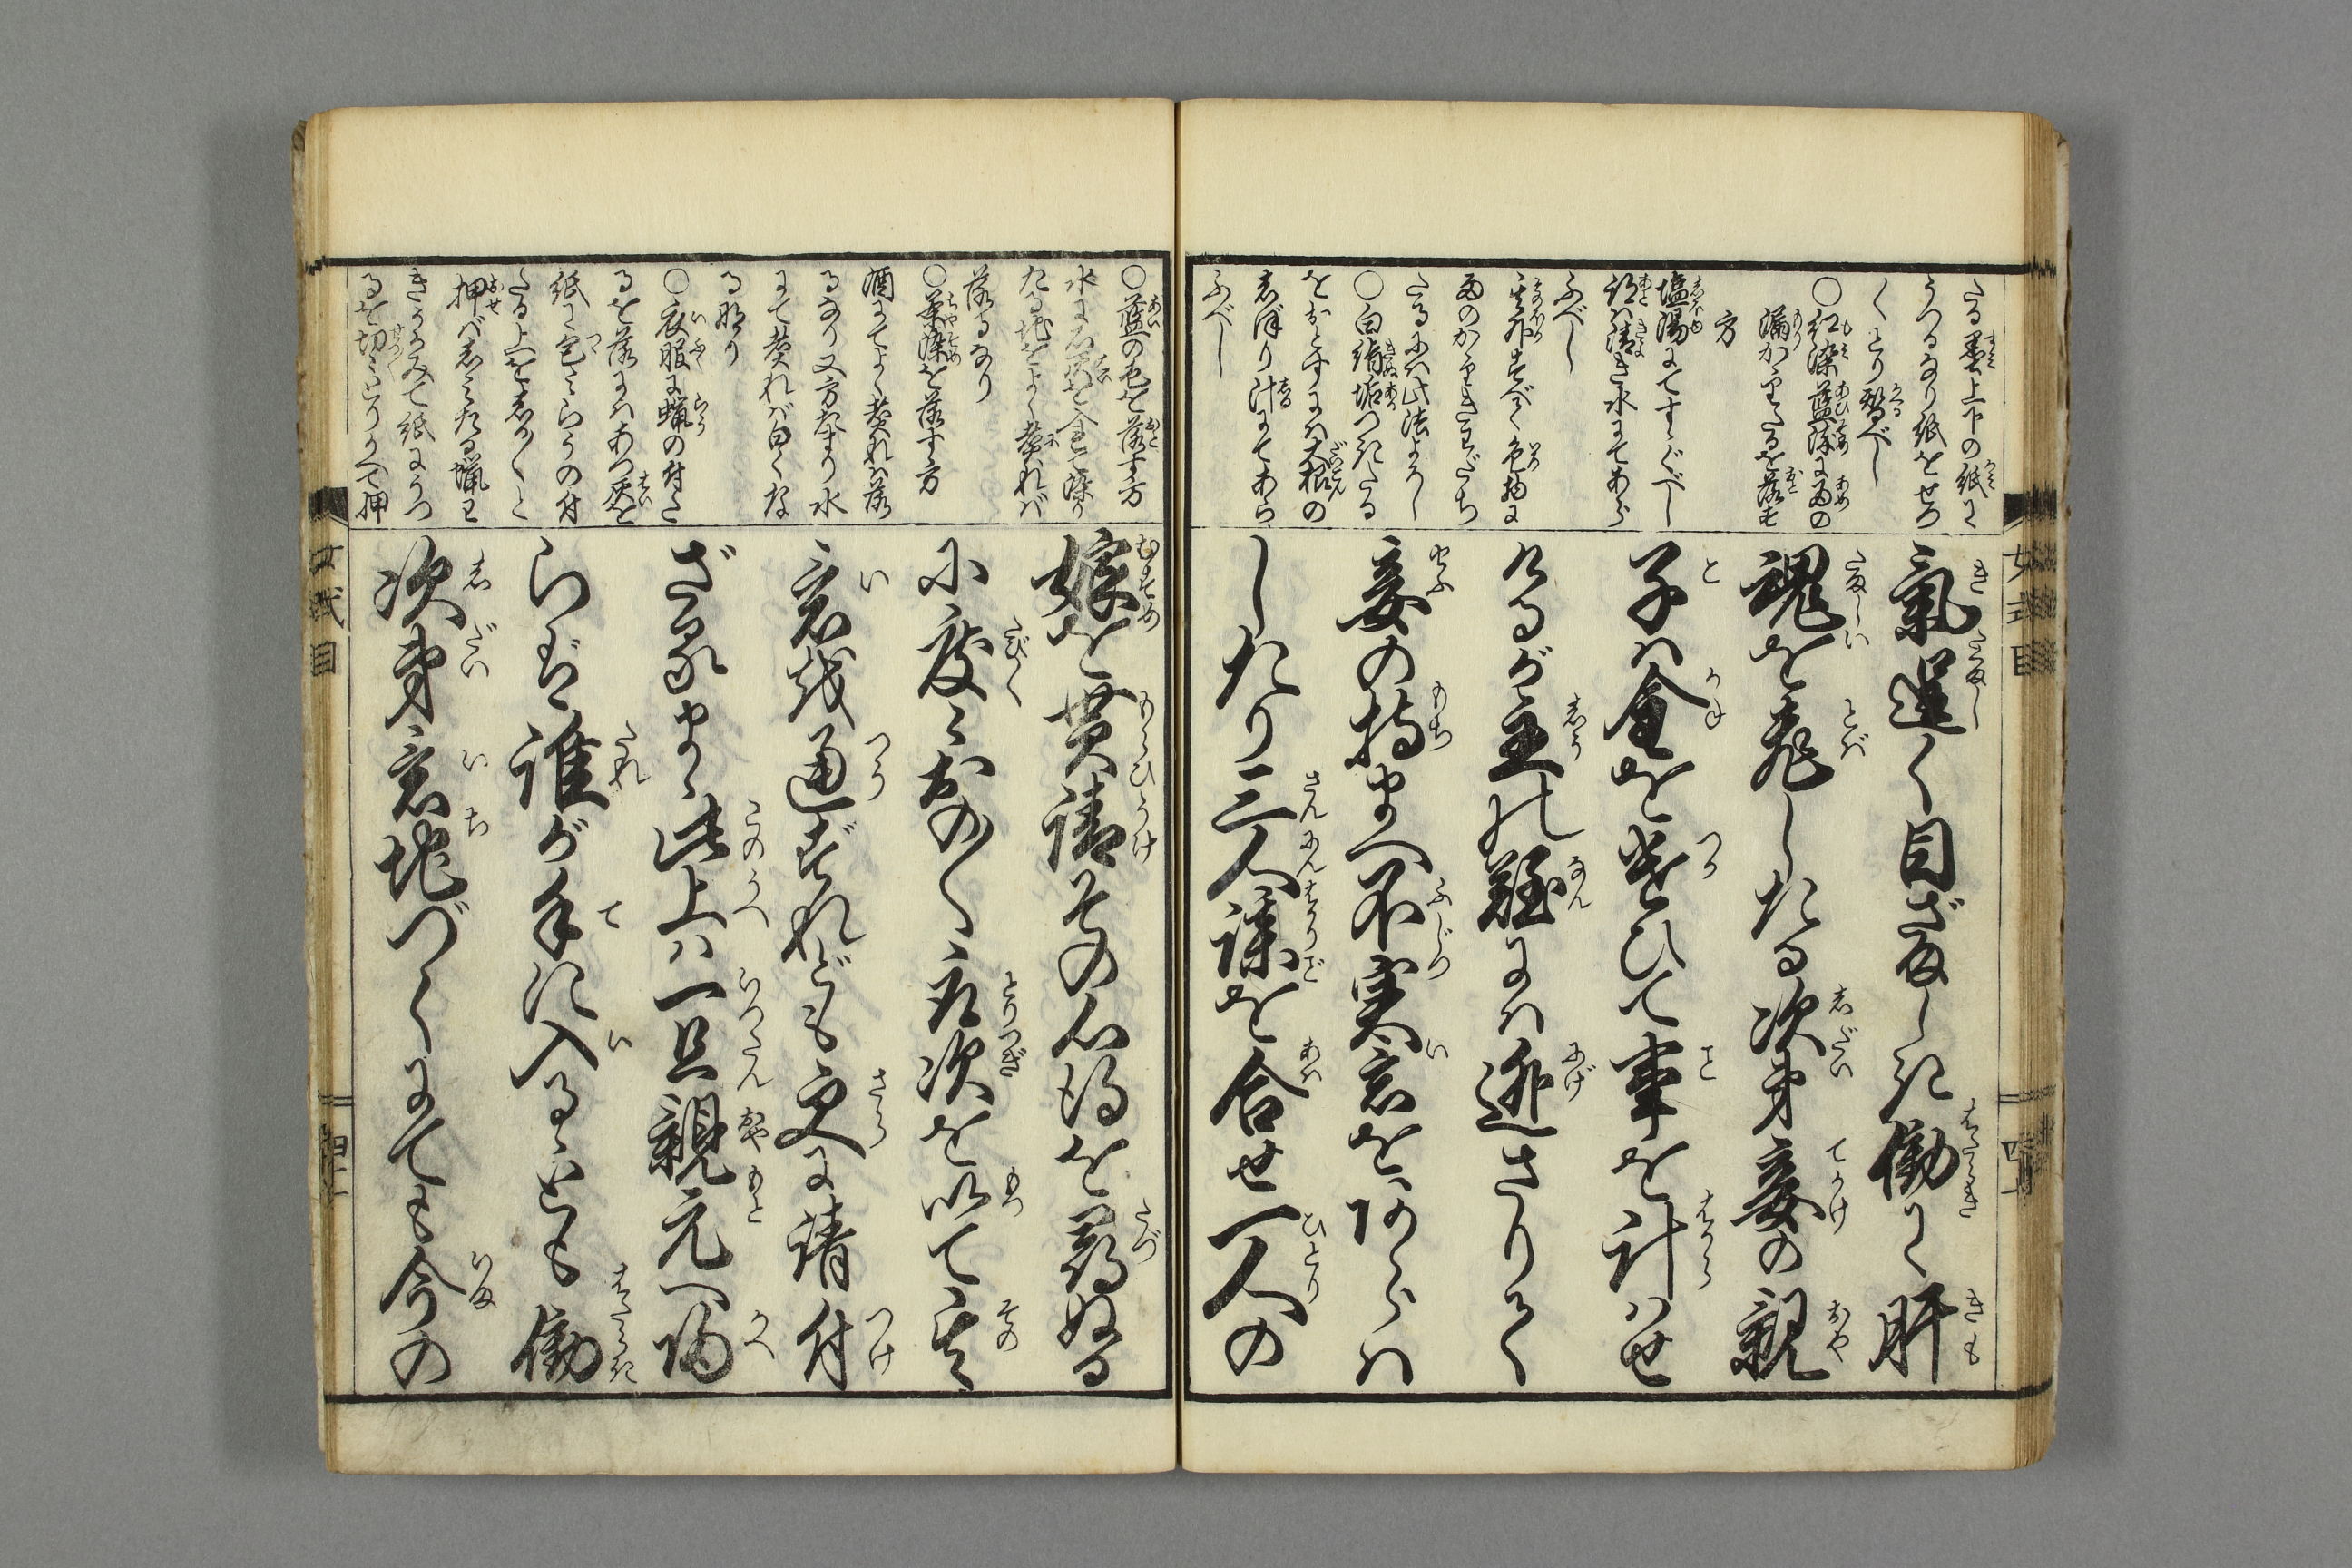 たる墨上下の紙に
うつるなり紙をせわ
しくとり替べし
○紅染藍染に雨の
漏かゝりたるを落す
方
塩湯にてすゝぐべし
跡は清き水にてあら
ふべし
其外すべて色物に
雨のかゝりきはだち
たるには此法よろし
○白絹垢つきたる
をおとすには大根の
しぼり汁にてあら
ふべし
氣逞く目ざましき働に肝
魂を飛したる次第妾の親
子は金を遣ひて事を計はせ
けるが主の難には逃さりて
妾の持まへ不実意をあらは
したり三人謀を合せ一人の
○藍の色を落す方
水に石灰を合て染
たる地をよく煮れば
落るなり
○茶染を落す方
酒にてよく煮れば落
るなり又方なまり水
にて煮れば白くな
る有り
○衣服に蝋の付た
るを落にはあつ灰を
紙に包みらうの付
たる上をしか〳〵と
押ばしみたる蝋は
きうみて紙にうつ
るを切々とりかへて押
嫁を貰請その心得を尋ぬる
に度々おの〳〵取次を以て其
意を通ずれども更に請付
ざるまゝ此上は一旦親元へ帰
らば誰が手に入るとも働
次第意地づくにても今の
女式目
四十一